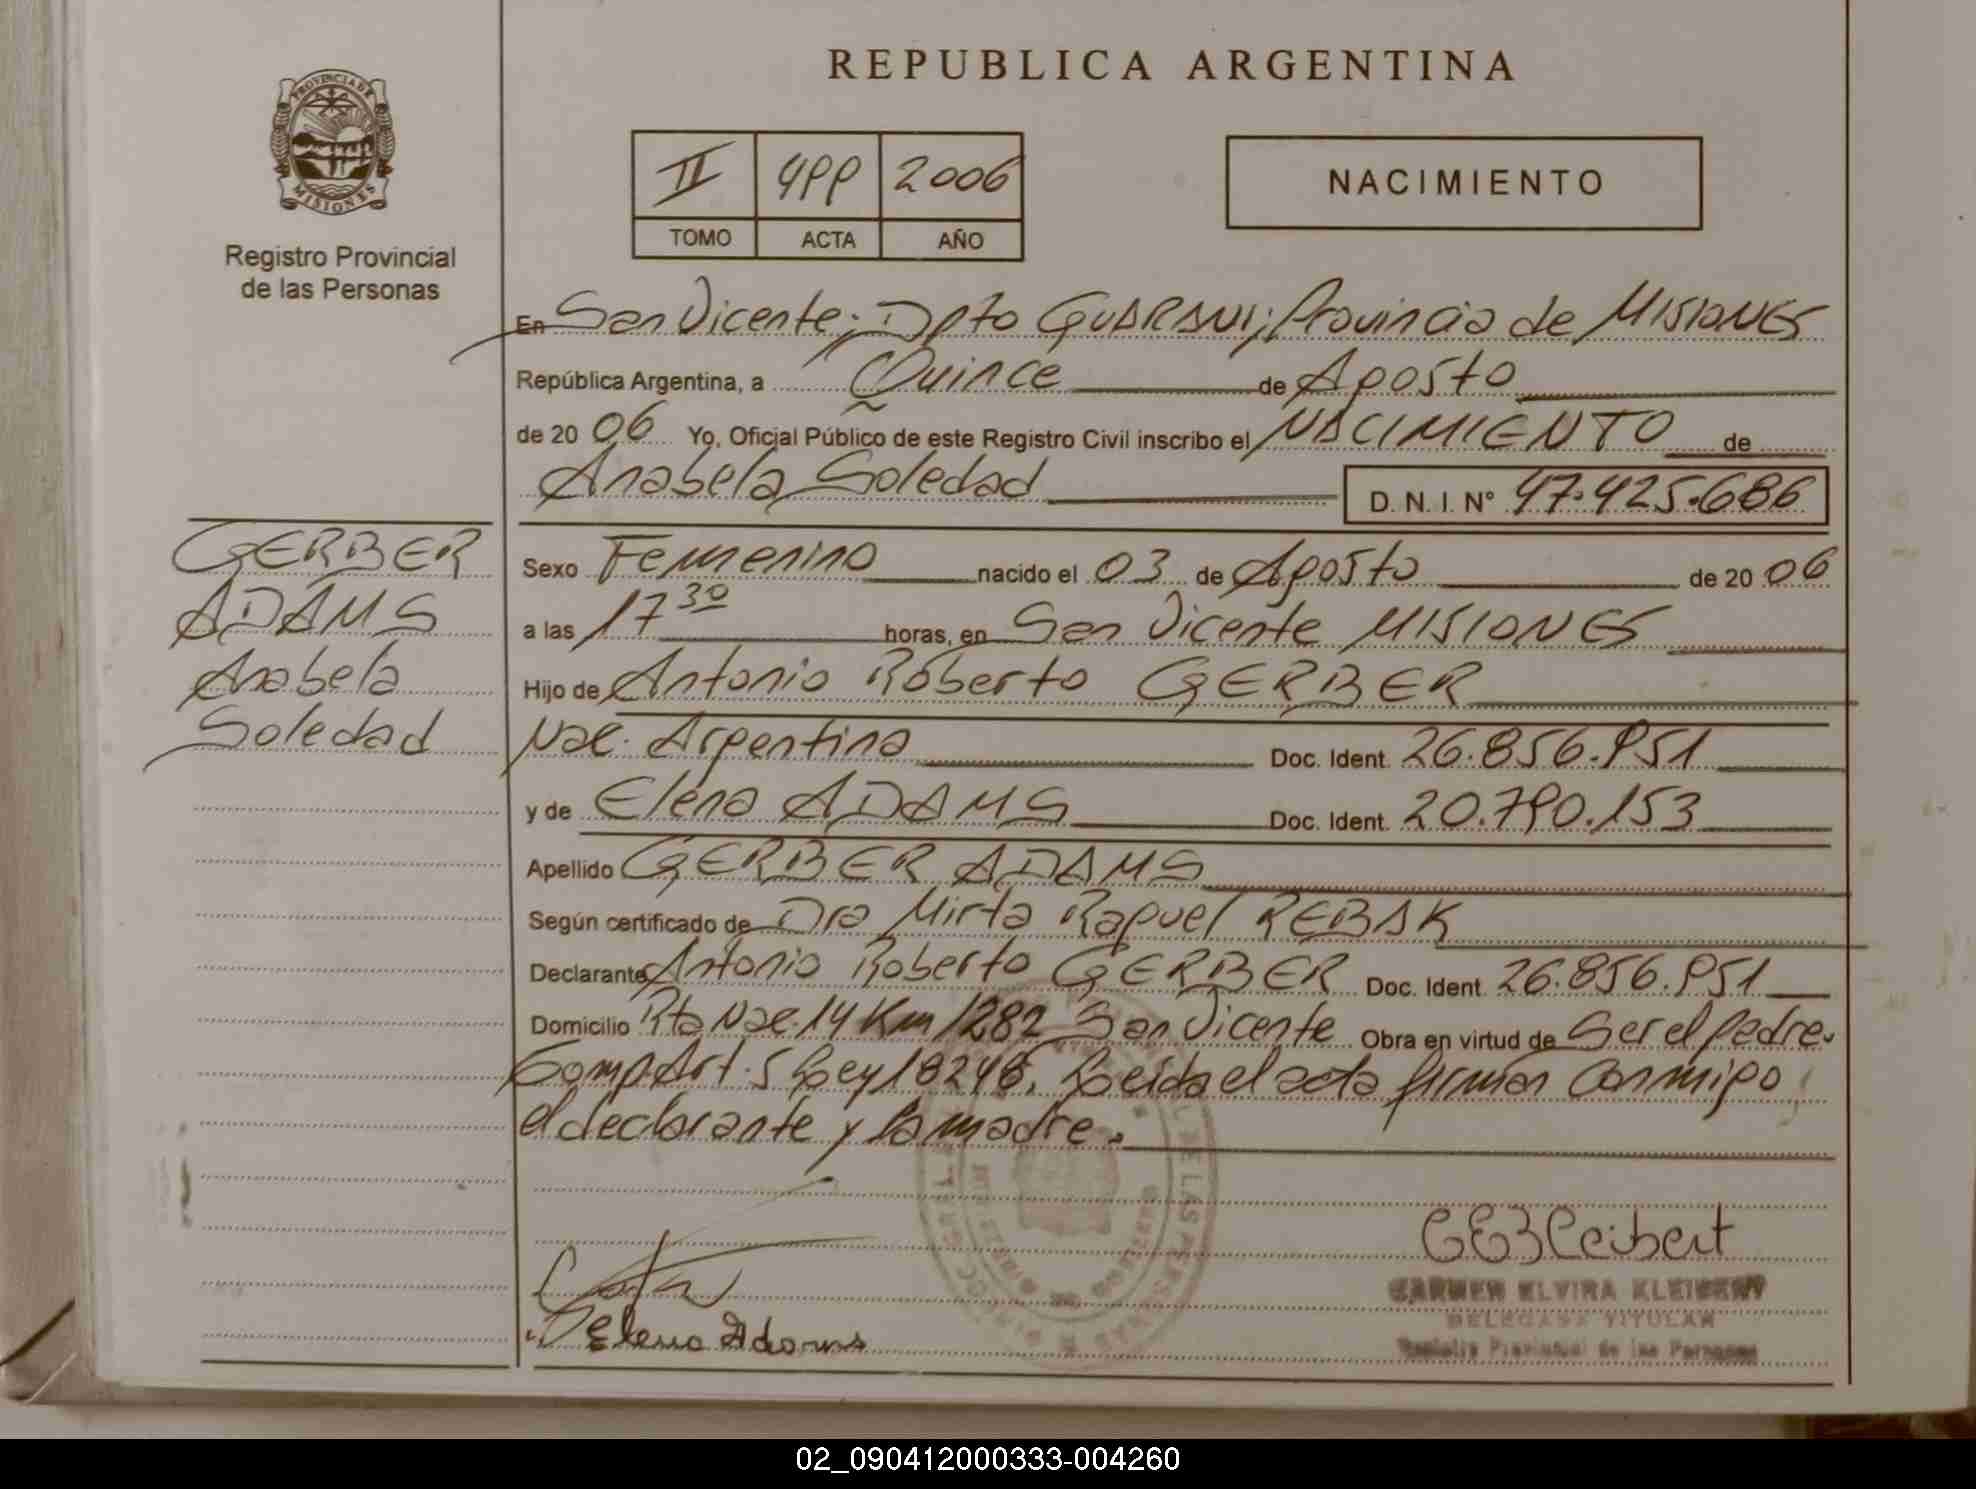 REPUBLICA ARGENTINA
PROVINCIA DE
MISIONES
Registro Provincial
de las Personas
II 499 2006
TOMO ACTA AÑO
NACIMIENTO
En San Vicente; Dpto GUARANI; Provincia de MISIONES
República Argentina, a Quince de Agosto
de 20 06 Yo, Oficial Público de este Registro Civil inscribo el NACIMIENTO de
Anabela Soledad D. N. I. N° 47.425.686
GERBER
ADAMS
Anabela
Soledad
Sexo Femenino nacido el 03 de Agosto de 20 06
a las 17 30 horas, en San Vicente MISIONES
Hijo de Antonio Roberto GERBER
Nac. Argentina Doc. Ident. 26.856.951
y de Elena ADAMS Doc. Ident. 20.790.153
Apellido GERBER ADAMS
Según certificado de Dra Mirta Raquel REBAK
Declarante Antonio Roberto GERBER Doc. Ident 26.856.951
Domicilio Rta Nac. 14 Km 1282 San Vicente Obra en virtud de Ser el padre.
Comp Art. 5 Ley 18248. Leida el acta firman Conmigo
el declarante y la madre.
Elena Adams
CARMEN ELVIRA KLEIBERT
DELEGADA TITULAR
Registro Provincial de las Personas
02_090412000333-004260